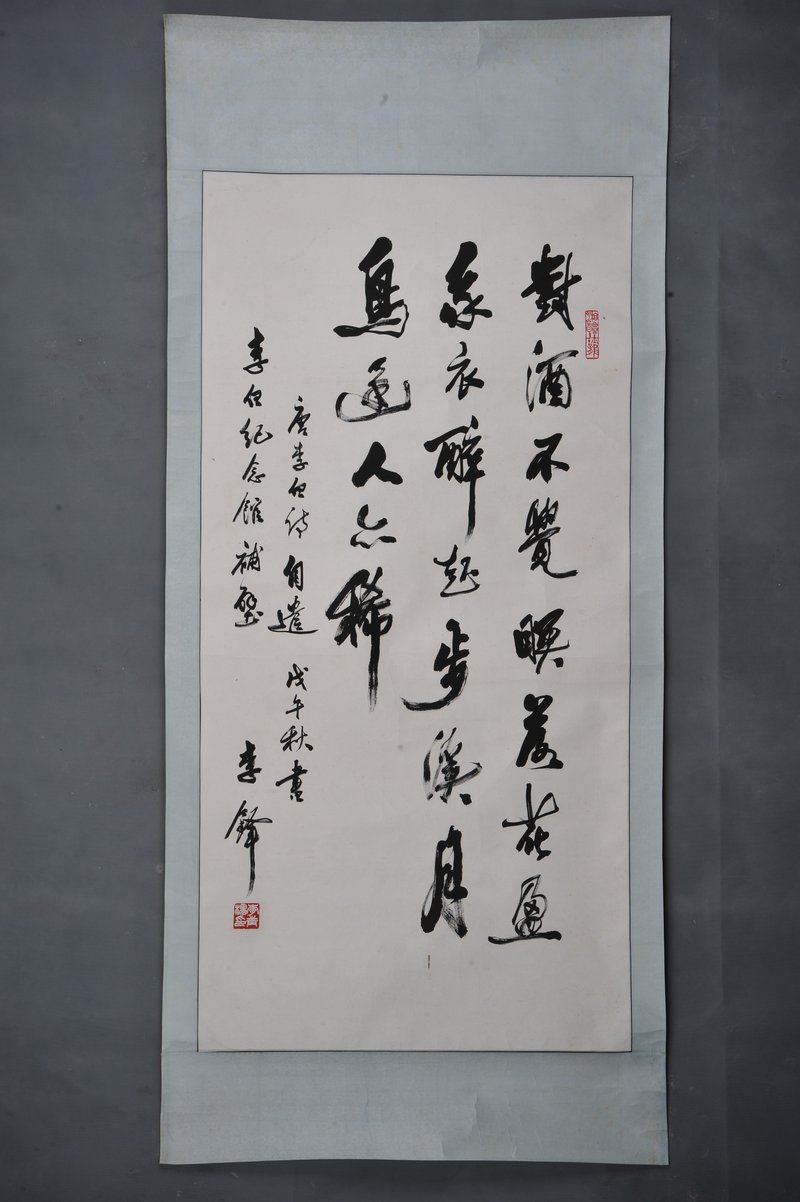 對酒不覺暝落花盈
我衣醉起步溪月
鳥還人亦稀
唐李白詩自遣 戊午秋書
李白紀念館補壁
李鐸